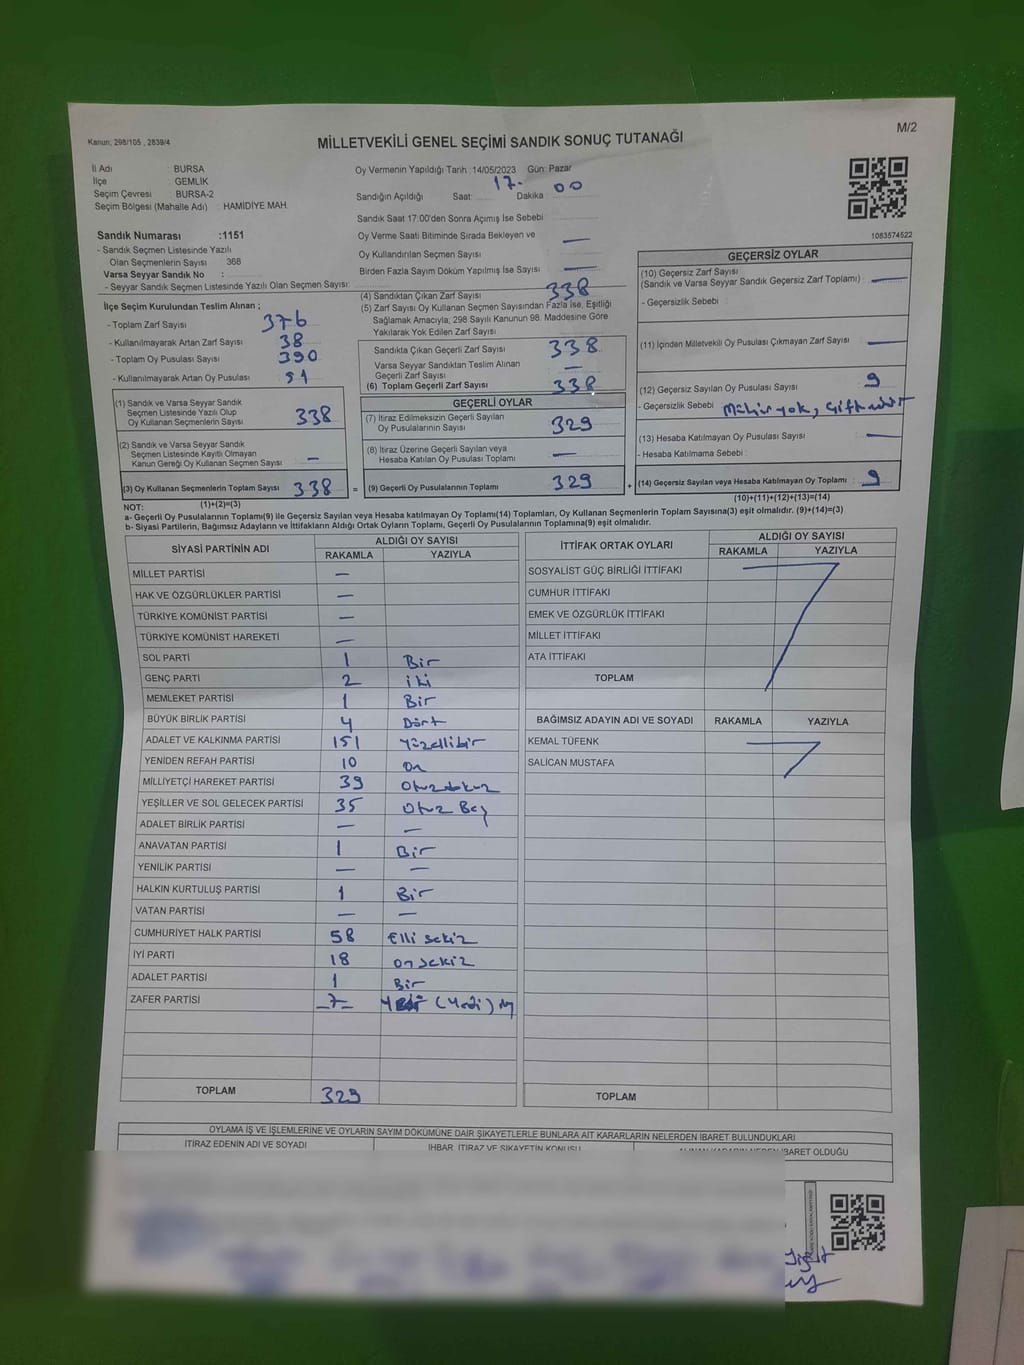 M/2
Kanun; 298/105 , 2839/4
MİLLETVEKİLİ GENEL SEÇİMİ SANDIK SONUÇ TUTANAĞI
İl Adı : BURSA
İlçe : GEMLİK
Seçim Çevresi : BURSA-2
Seçim Bölgesi (Mahalle Adı) : HAMİDİYE MAH.
Sandık Numarası :1151
- Sandık Seçmen Listesinde Yazılı
Olan Seçmenlerin Sayısı 368
Varsa Seyyar Sandık No :
- Seyyar Sandık Seçmen Listesinde Yazılı Olan Seçmen Sayısı:
Oy Vermenin Yapıldığı Tarih :14/05/2023 Gün: Pazar
Sandığın Açıldığı Saat: 17- Dakika 00
Sandık Saat 17:00'den Sonra Açımış İse Sebebi
Oy Verme Saati Bitiminde Sırada Bekleyen ve
Oy Kullandırılan Seçmen Sayısı —
Birden Fazla Sayım Döküm Yapılmış İse Sayısı —
1083574522
İlçe Seçim Kurulundan Teslim Alınan ;
- Toplam Zarf Sayısı 376
- Kullanılmayarak Artan Zarf Sayısı 38
- Toplam Oy Pusulası Sayısı 390
- Kullanılmayarak Artan Oy Pusulası 51
(1) Sandık ve Varsa Seyyar Sandık
Seçmen Listesinde Yazılı Olup
Oy Kullanan Seçmenlerin Sayısı 338
(2) Sandık ve Varsa Seyyar Sandık
Seçmen Listesinde Kayıtlı Olmayan
Kanun Gereği Oy Kullanan Seçmen Sayısı —
(3) Oy Kullanan Seçmenlerin Toplam Sayısı 338
(1)+(2)=(3)
(4) Sandıktan Çıkan Zarf Sayısı 338
(5) Zarf Sayısı Oy Kullanan Seçmen Sayısından Fazla İse, Eşitliği
Sağlamak Amacıyla, 298 Sayılı Kanunun 98. Maddesine Göre
Yakılarak Yok Edilen Zarf Sayısı
Sandıkta Çıkan Geçerli Zarf Sayısı 338
Varsa Seyyar Sandıktan Teslim Alınan
Geçerli Zarf Sayısı —
(6) Toplam Geçerli Zarf Sayısı 338
GEÇERLİ OYLAR
(7) İtiraz Edilmeksizin Geçerli Sayılan
Oy Pusulalarının Sayısı 329
(8) İtiraz Üzerine Geçerli Sayılan veya
Hesaba Katılan Oy Pusulaları Toplamı —
= (9) Geçerli Oy Pusulalarının Toplamı 329
GEÇERSİZ OYLAR
(10) Geçersiz Zarf Sayısı
(Sandık ve Varsa Seyyar Sandık Geçersiz Zarf Toplamı) : —
- Geçersizlik Sebebi :
(11) İçinden Milletvekili Oy Pusulası Çıkmayan Zarf Sayısı —
(12) Geçersiz Sayılan Oy Pusulası Sayısı : 9
- Geçersizlik Sebebi : Mühür yok,
(13) Hesaba Katılmayan Oy Pusulası Sayısı —
- Hesaba Katılmama Sebebi :
+ (14) Geçersiz Sayılan veya Hesaba Katılmayan Oy Toplamı : 9
(10)+(11)+(12)+(13)=(14)
NOT:
a- Geçerli Oy Pusulalarının Toplamı(9) ile Geçersiz Sayılan veya Hesaba Katılmayan Oy Toplamı(14) Toplamları, Oy Kullanan Seçmenlerin Toplam Sayısına(3) eşit olmalıdır. (9)+(14)=(3)
b- Siyasi Partilerin, Bağımsız Adayların ve İttifakların Aldığı Ortak Oyların Toplamı, Geçerli Oy Pusulalarının Toplamına(9) eşit olmalıdır.
SİYASİ PARTİNİN ADI ALDIĞI OY SAYISI
RAKAMLA YAZIYLA
MİLLET PARTİSİ —
HAK VE ÖZGÜRLÜKLER PARTİSİ —
TÜRKİYE KOMÜNİST PARTİSİ —
TÜRKİYE KOMÜNİST HAREKETİ —
SOL PARTİ 1 Bir
GENÇ PARTİ 2 iki
MEMLEKET PARTİSİ 1 Bir
BÜYÜK BİRLİK PARTİSİ 4 Dört
ADALET VE KALKINMA PARTİSİ 151 Yüzellibir
YENİDEN REFAH PARTİSİ 10 On
MİLLİYETÇİ HAREKET PARTİSİ 39 Otuzdokuz
YEŞİLLER VE SOL GELECEK PARTİSİ 35 Otuz Beş
ADALET BİRLİK PARTİSİ — —
ANAVATAN PARTİSİ 1 Bir
YENİLİK PARTİSİ — —
HALKIN KURTULUŞ PARTİSİ 1 Bir
VATAN PARTİSİ — —
CUMHURİYET HALK PARTİSİ 58 Elli sekiz
İYİ PARTİ 18 onsekiz
ADALET PARTİSİ 1 Bir
ZAFER PARTİSİ -7- (Yedi)
TOPLAM 329
İTTİFAK ORTAK OYLARI ALDIĞI OY SAYISI
RAKAMLA YAZIYLA
SOSYALİST GÜÇ BİRLİĞİ İTTİFAKI
CUMHUR İTTİFAKI
EMEK VE ÖZGÜRLÜK İTTİFAKI
MİLLET İTTİFAKI
ATA İTTİFAKI
TOPLAM
BAĞIMSIZ ADAYIN ADI VE SOYADI RAKAMLA YAZIYLA
KEMAL TÜFENK
SALİCAN MUSTAFA
TOPLAM
OYLAMA İŞ VE İŞLEMLERİNE VE OYLARIN SAYIM DÖKÜMÜNE DAİR ŞİKAYETLERLE BUNLARA AİT KARARLARIN NELERDEN İBARET BULUNDUKLARI
İTİRAZ EDENİN ADI VE SOYADI İHBAR, İTİRAZ VE ŞİKAYETİN KONUSU İBARET OLDUĞU